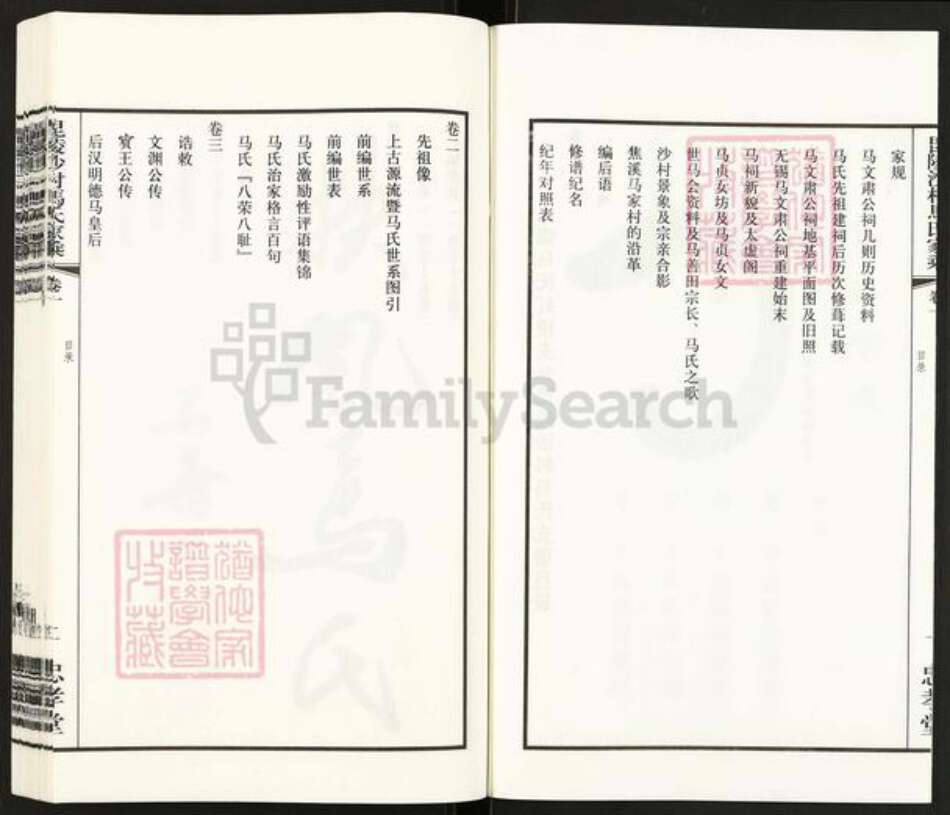 家规
马文肃公祠几则历史资料
马氏先祖建祠后历次修葺记载
马文肃公祠地基平面图及旧照
无锡马文肃公祠重建始末
马祠新貌及太虚阁
马贞女坊及马贞女文
世马会资料及马善田宗长、马氏之歌
沙村景象及宗亲合影
焦溪马家村的沿革
编后语
修谱纪名
纪年对照表
目录
忠孝堂
卷二
先祖像
上古源流暨马氏世系图引
前编世系
前编世表
马氏激励性评语集锦
马氏治家格言百句
马氏『八荣八耻』
卷三
诰敕
文渊公传
宾王公传
后汉明德马皇后
卷一
目录
二
忠孝堂
猶他家譜學會收藏
FamilySearch